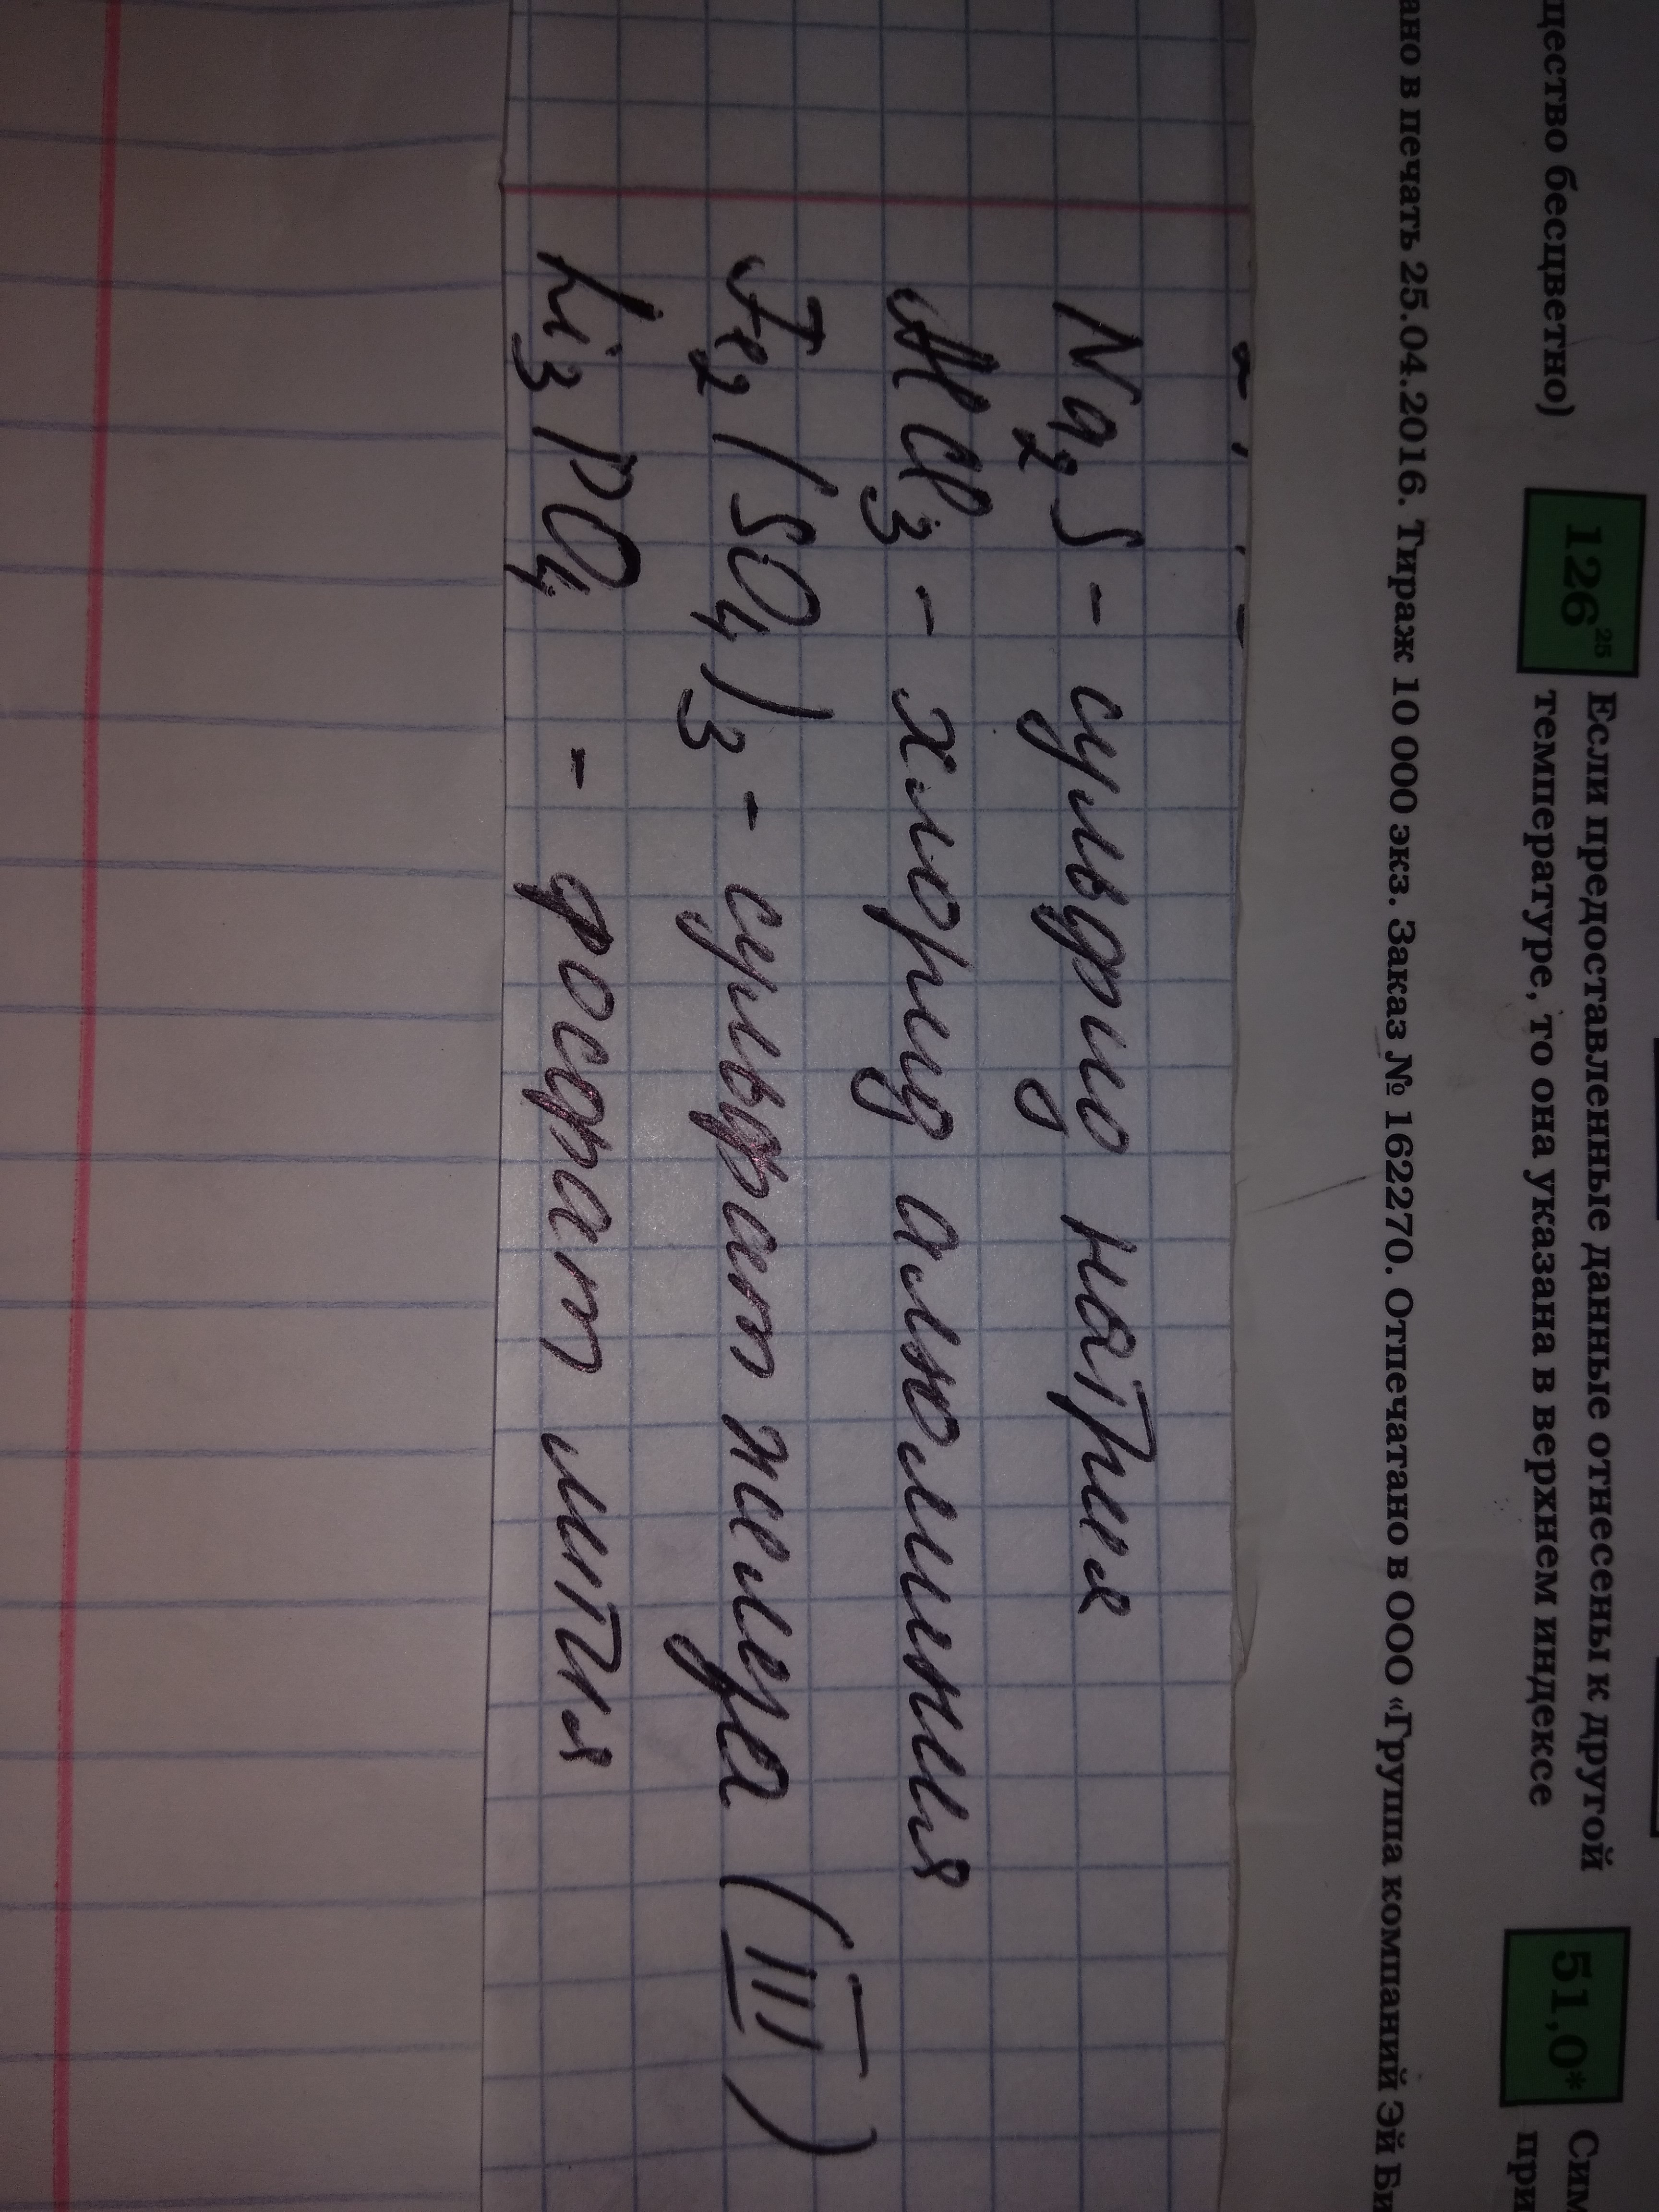 щество бесцветно)
126²⁵
Если предоставленные данные отнесены к другой
температуре, то она указана в верхнем индексе
51,0*
Сим
при
ано в печать 25.04.2016. Тираж 10 000 экз. Заказ № 162270. Отпечатано в ООО «Группа компаний Эй Би
Na₂S - сульфид натрия
AlCl₃ - хлорид алюминия
Fe₂(SO₄)₃ - сульфат железа (III)
Li₃PO₄ - фосфат лития